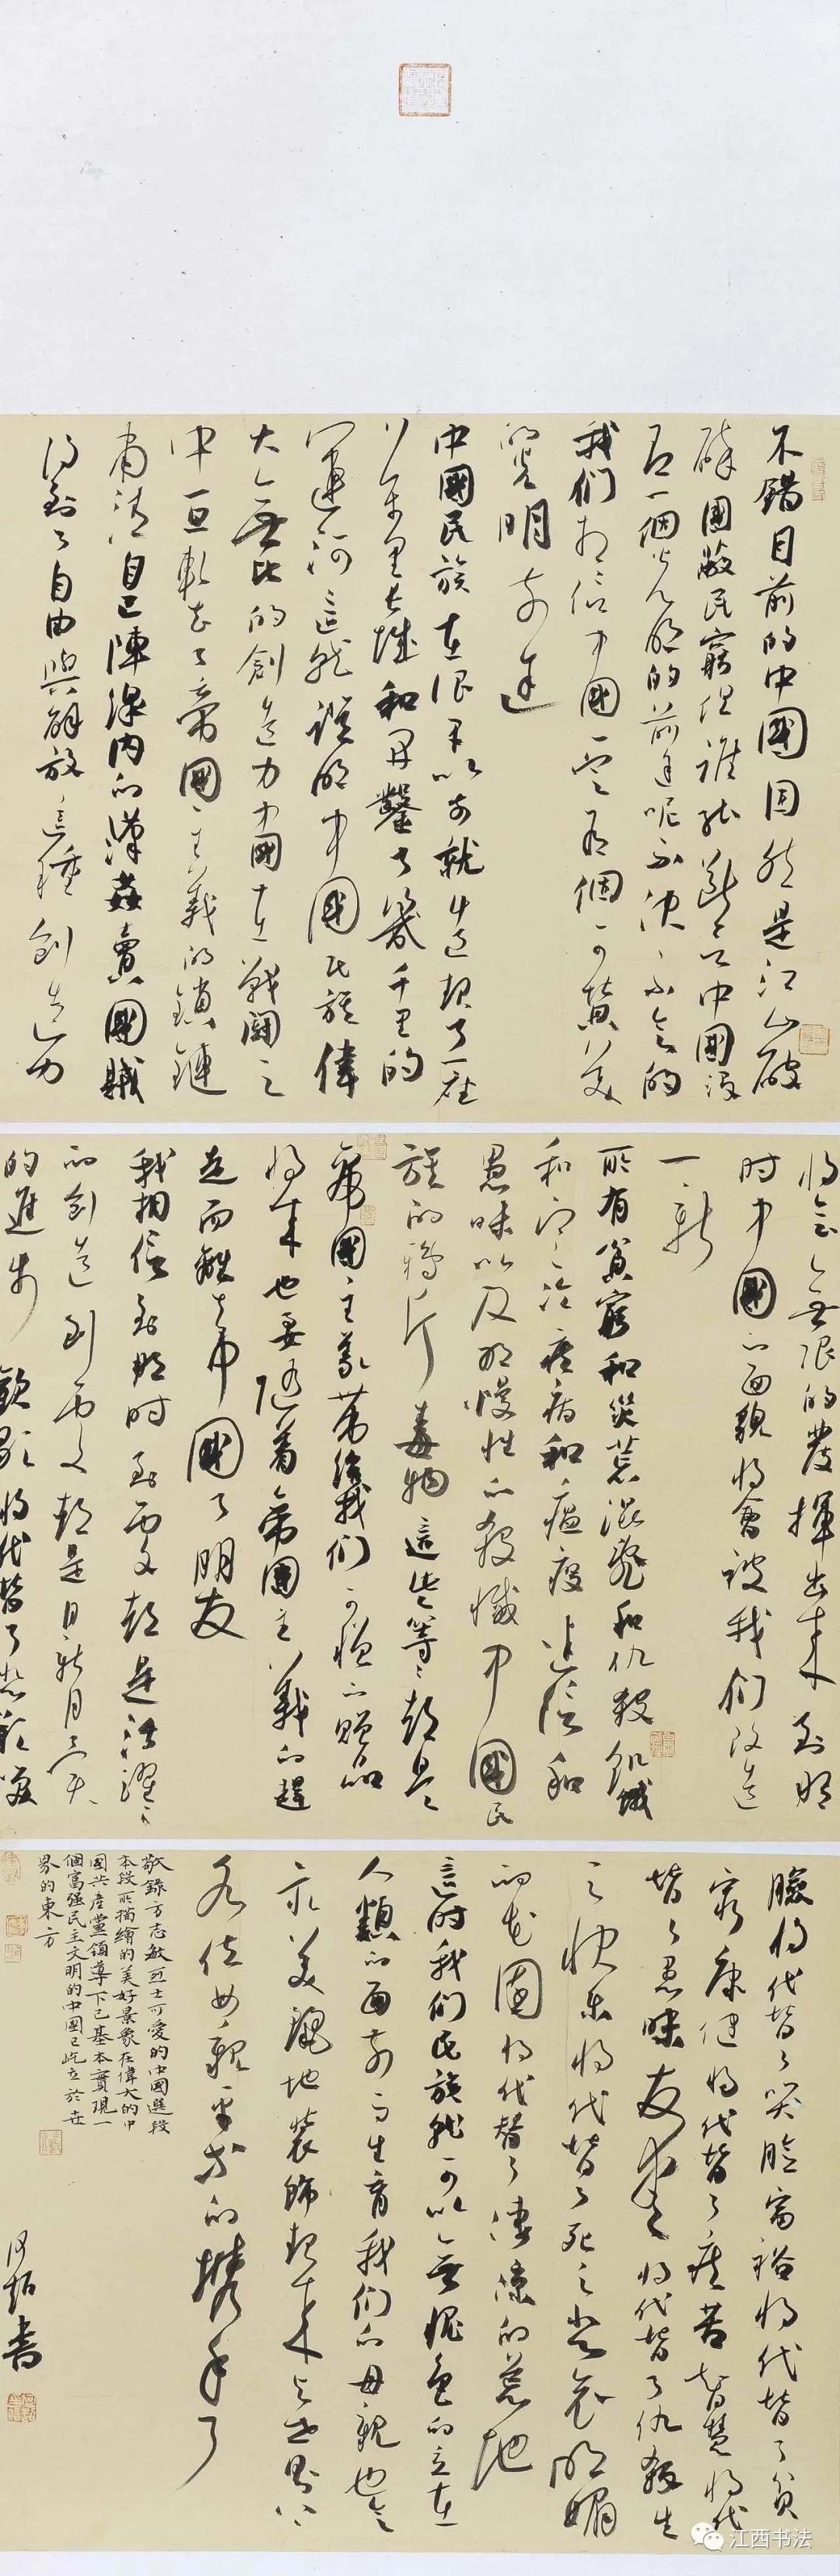 不錯目前的中國固然是江山破
碎國敝民窮但誰能斷言中國沒
有一個光明的前途呢不決不會的
我們相信中國一定有個可贊美
的光明前途
中國民族在很早以前就造起了一座
萬里長城和開鑿了幾千里的
運河這就證明中國民族偉
大無比的創造力中國在戰鬭之
中一旦斬去了帝國主義的鎖鏈
肅清自己陣線內的漢姦賣國賊
得到了自由與解放這種創造力
將會無限的發揮出來到那
時中國的面貌將會被我們改造
一新
所有貧窮和災荒混亂和仇殺飢餓
和寒冷疾病和瘟疫迷信和
愚昧以及那慢性的殺滅中國民
族的鴉片毒物這些等等都是
帝國主義帶給我們可憎的贈品
將來也要隨着帝國主義的趕
走而離去中國了朋友
我相信到那時到處都是活躍躍
的創造到處都是日新月異
的進步歡歌將代替了悲歎笑
臉將代替了哭臉富裕將代替了貧
窮康健將代替了疾苦智慧將代
替了愚昧友愛將代替了仇殺生
之快樂將代替了死之悲哀明媚
的花園將代替了淒涼的荒地
這時我們民族就可以無愧色的立在
人類的面前而生育我們的母親也會
最美麗地裝飾起來與世界上
各位母親平等的攜手了
敬錄方志敏烈士可愛的中國選段
本段所描繪的美好景象在偉大的中
國共產黨領導下已基本實現一
個富強民主文明的中國已屹立於世
界的東方
江西书法